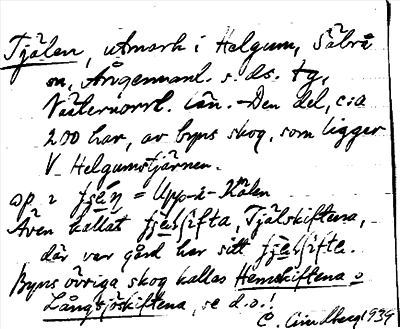 Tjälen, utmark i Helgum, Säbrå
sn, Ångermanl. s. ds. tg,
Västernorrl. län. - Den del, c:a
200 har, av byns skog, som ligger
V Helgumstjärnen.
= Upp-i-Kälen
Även kallat Tjälskiftena,
där var gård har sitt
Byns övriga skog kallas Hemskiftena o
Långsjöskiftena, se d.o.!
1939